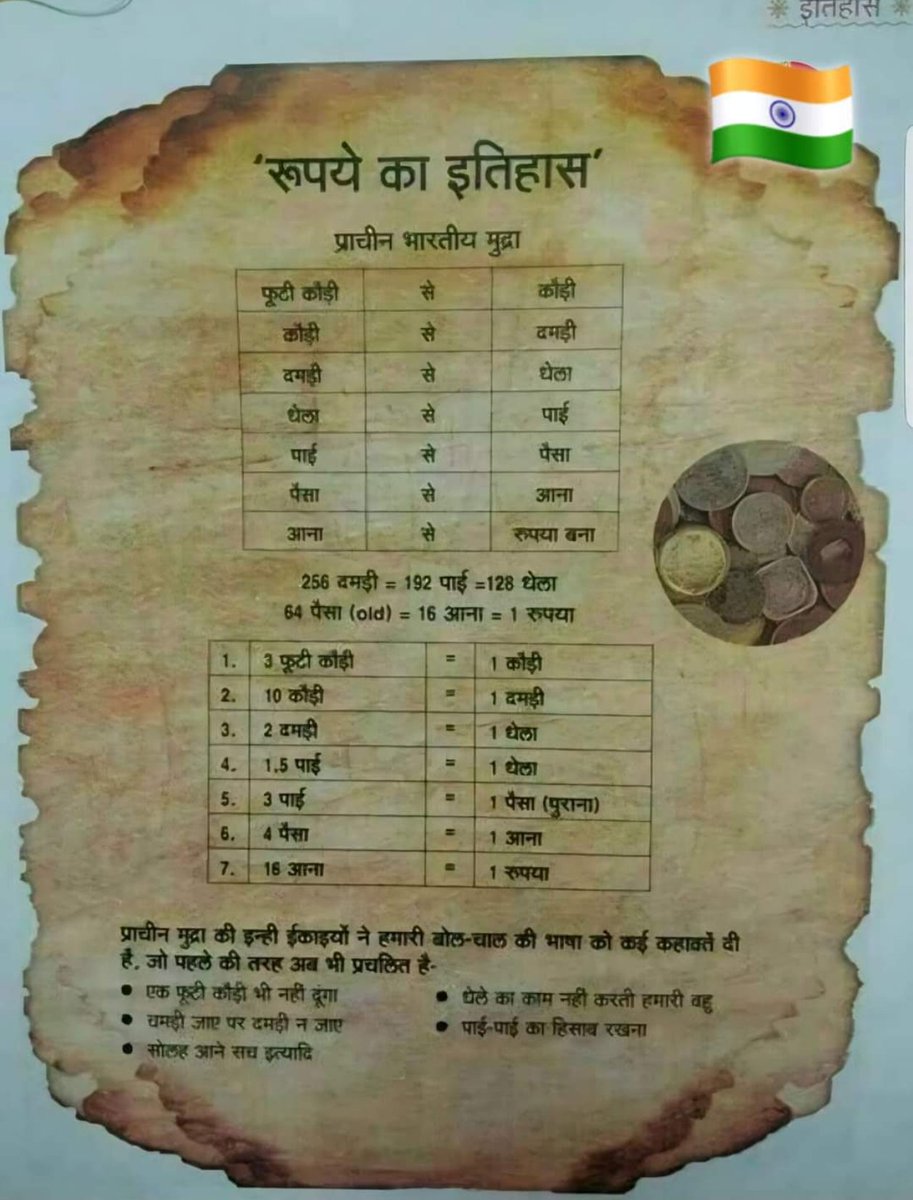 इतिहास
'रूपये का इतिहास'
प्राचीन भारतीय मुद्रा
फूटी कौड़ी से कौड़ी
कौड़ी से दमड़ी
दमड़ी से धेला
धेला से पाई
पाई से पैसा
पैसा से आना
आना से रुपया बना
256 दमड़ी = 192 पाई =128 धेला
64 पैसा (old) = 16 आना = 1 रुपया
1. 3 फूटी कौड़ी = 1 कौड़ी
2. 10 कौड़ी = 1 दमड़ी
3. 2 दमड़ी = 1 धेला
4. 1.5 पाई = 1 धेला
5. 3 पाई = 1 पैसा (पुराना)
6. 4 पैसा = 1 आना
7. 16 आना = 1 रुपया
प्राचीन मुद्रा की इन्ही ईकाइयों ने हमारी बोल-चाल की भाषा को कई कहावतें दी
है, जो पहले की तरह अब भी प्रचलित है-
• एक फूटी कौड़ी भी नहीं दूंगा
• चमड़ी जाए पर दमड़ी न जाए
• सोलह आने सच इत्यादि
• धेले का काम नहीं करती हमारी बहु
• पाई-पाई का हिसाब रखना